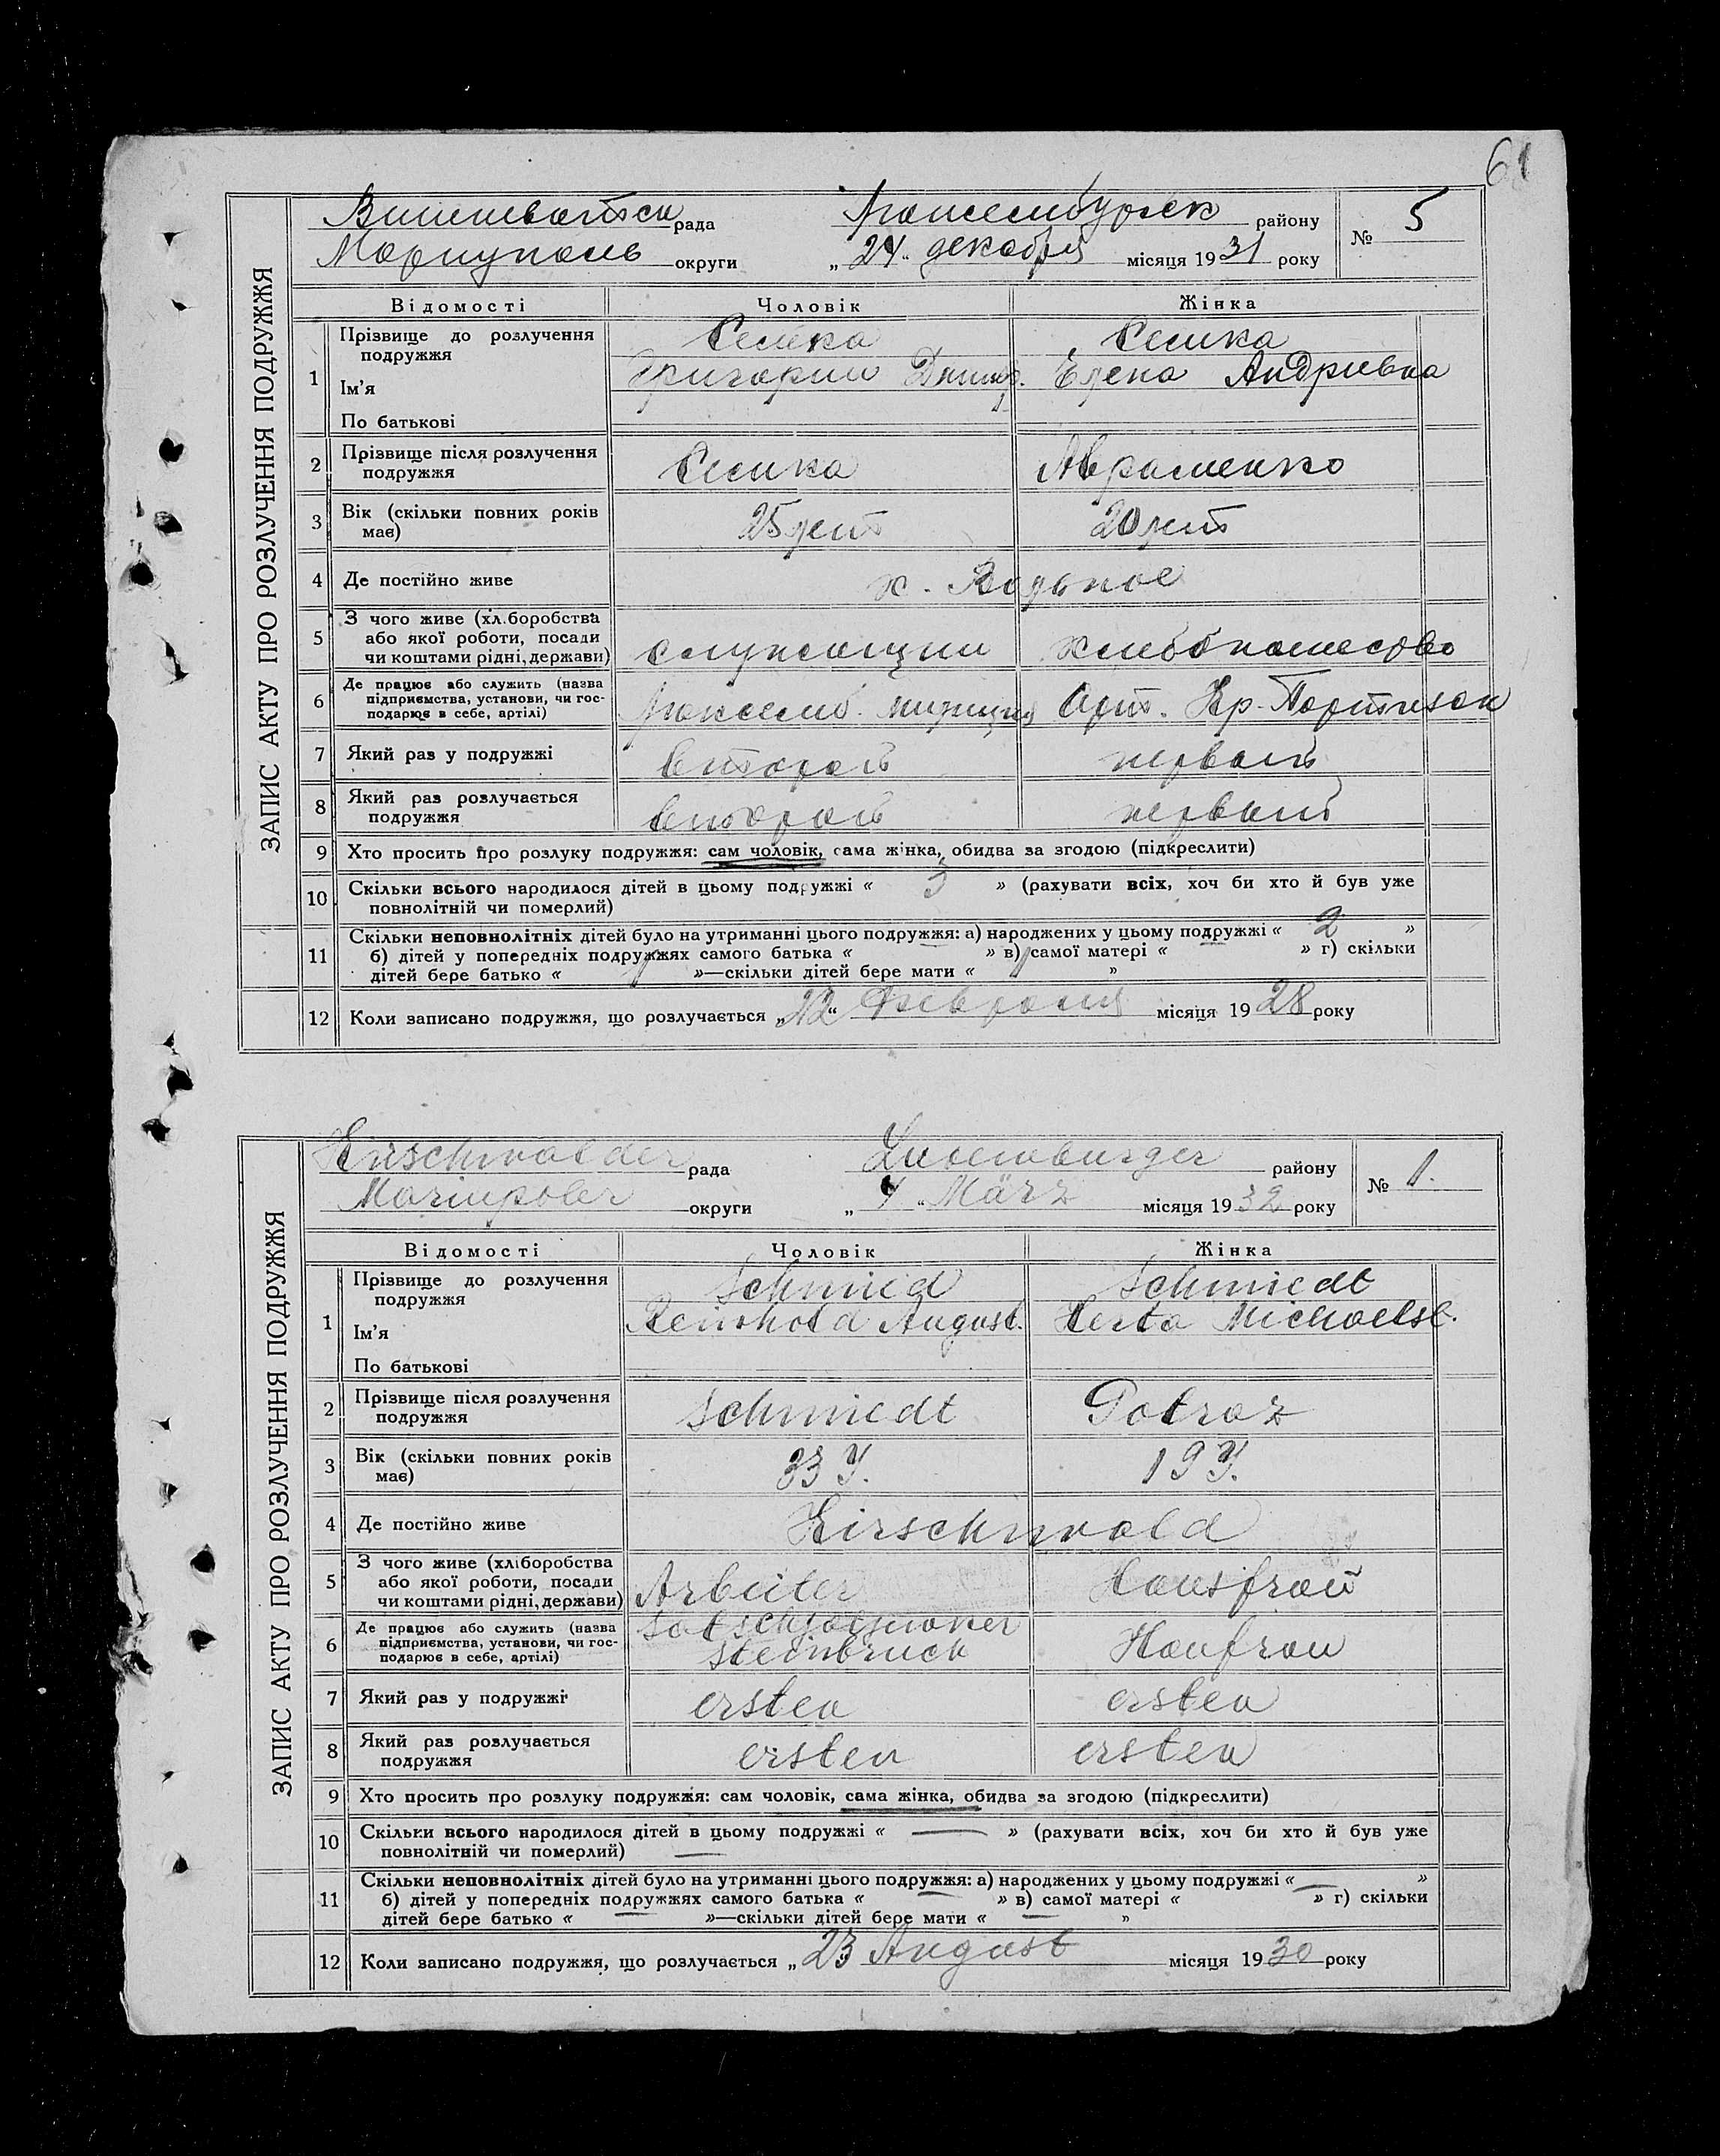 61
ЗАПИС АКТУ ПРО РОЗЛУЧЕННЯ ПОДРУЖЖЯ
рада Люксембургск району № 5
Мариуполь округи „ 24 “ декабря місяця 1931 року
Відомості Чоловік Жінка
1 Прізвище до розлучення подружжя Семка Семка
Ім’я Григорий Дмитр. Елена Андриевна
По батькові
2 Прізвище після розлучення подружжя Семка Авраменко
3 Вік (скільки повних років має) 25 лет 20 лет
4 Де постійно живе х. Водяное
5 З чого живе (хліборобства або якої роботи, посади чи коштами рідні, держави) служащий хлебопашество
6 Де працює або служить (назва підприємства, установи, чи господарює в себе, артілі) Люксемб. милиция Арт. Кр. Партизан
7 Який раз у подружжі второй первый
8 Який раз розлучається подружжя второй первый
9 Хто просить про розлуку подружжя: сам чоловік, сама жінка, обидва за згодою (підкреслити)
10 Скільки всього народилося дітей в цьому подружжі « 3 » (рахувати всіх, хоч би хто й був уже
повнолітній чи померлий)
11 Скільки неповнолітніх дітей було на утриманні цього подружжя: а) народжених у цьому подружжі « 2 »
б) дітей у попередніх подружжях самого батька « » в) самої матері « » г) скільки
дітей бере батько « »—скільки дітей бере мати « »
12 Коли записано подружжя, що розлучається „ 22 “ Февраля місяця 1928 року
ЗАПИС АКТУ ПРО РОЗЛУЧЕННЯ ПОДРУЖЖЯ
Kirschwalder рада Luxemburger району № 1.
Mariupoler округи „ 4 “ März місяця 1932 року
Відомості Чоловік Жінка
1 Прізвище до розлучення подружжя Schmied Schmiedt
Ім’я Reinhold August. Herta Michaelst.
По батькові
2 Прізвище після розлучення подружжя Schmiedt Potraz
3 Вік (скільки повних років має) 33 Y. 19 Y.
4 Де постійно живе Kirschwald
5 З чого живе (хліборобства або якої роботи, посади чи коштами рідні, держави) Arbeiter Hausfrau
6 Де працює або служить (назва підприємства, установи, чи господарює в себе, артілі) Steinbruch Haufrau
7 Який раз у подружжі ersten ersten
8 Який раз розлучається подружжя ersten ersten
9 Хто просить про розлуку подружжя: сам чоловік, сама жінка, обидва за згодою (підкреслити)
10 Скільки всього народилося дітей в цьому подружжі « — » (рахувати всіх, хоч би хто й був уже
повнолітній чи померлий)
11 Скільки неповнолітніх дітей було на утриманні цього подружжя: а) народжених у цьому подружжі « — »
б) дітей у попередніх подружжях самого батька « — » в) самої матері « » г) скільки
дітей бере батько « — »—скільки дітей бере мати « — »
12 Коли записано подружжя, що розлучається „ 23 August місяця 1930 року